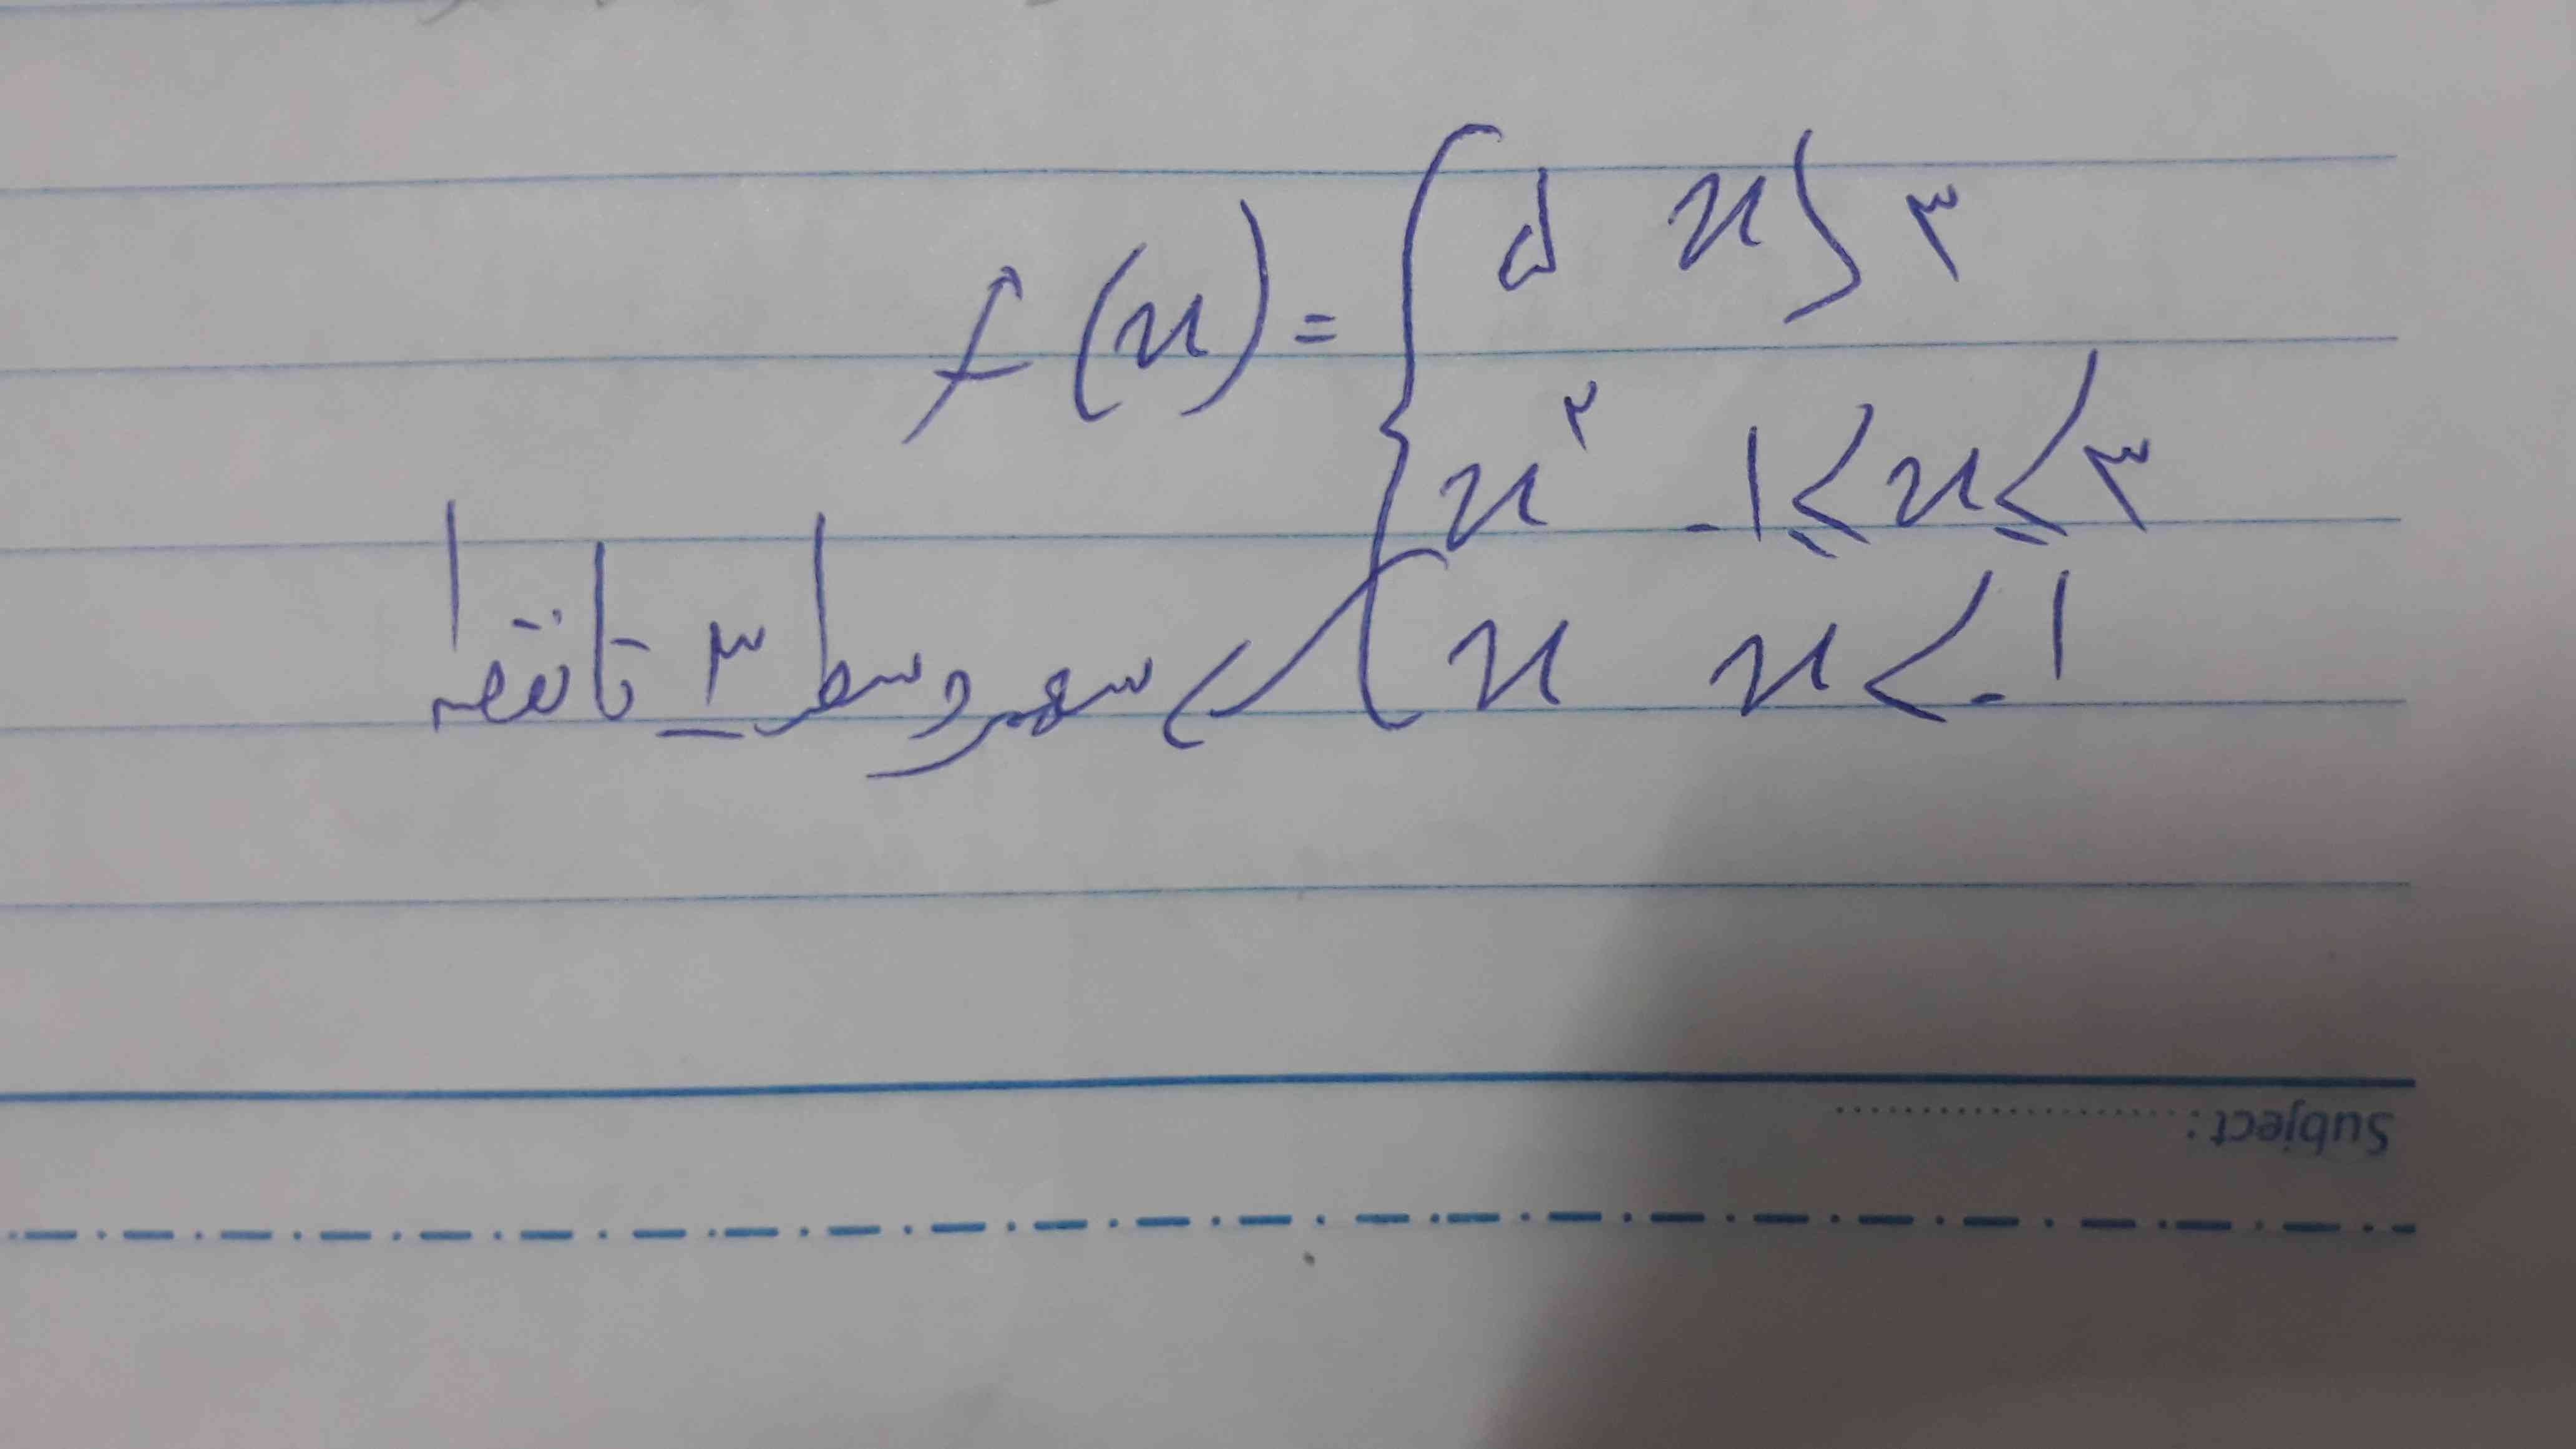 f(x) = { ۵ x > ۳
x² -۱ ≤ x ≤ ۳
x x < -۱
سهمی وسط ۳ تا نقطه
Subject: